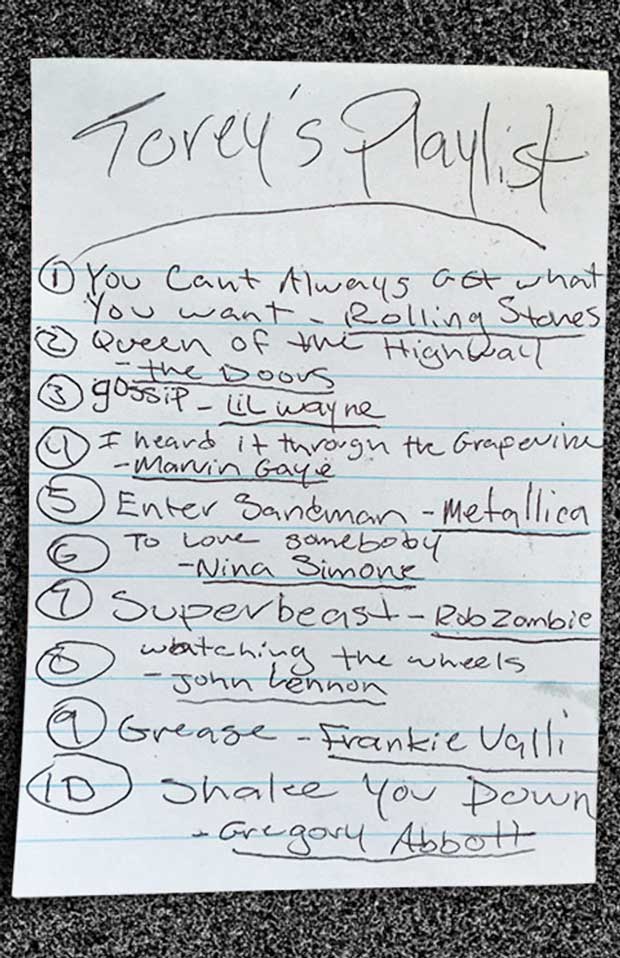 Torey's Playlist
① You Cant Always Get what
You want - Rolling Stones
② Queen of the Highway
- the Doors
③ gossip - LiL wayne
④ I heard it through the Grapevine
- Marvin Gaye
⑤ Enter Sandman - Metallica
⑥ To Love somebody
- Nina Simone
⑦ Superbeast - Rob Zombie
⑧ watching the wheels
- John Lennon
⑨ Grease - Frankie Valli
⑩ Shake You Down
- Gregory Abbott